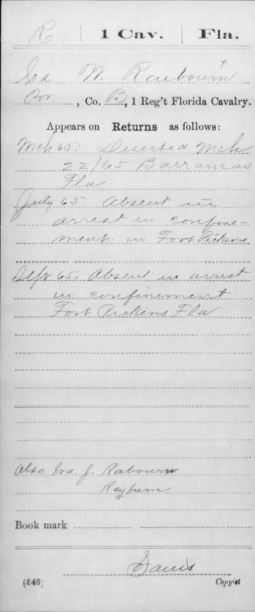 R | 1 Cav. | Fla.
Ira W. Raubourn
Pvt, Co. B, 1 Reg't Florida Cavalry.
Appears on Returns as follows:
Mch 65. Deserted Mch
22/65 Barrancas
Fla
July 65. Absent in
arrest in confine-
ment in Fort Pickens
Sept 65. Absent in arrest
in confinement
Fort Pickens Fla
Also Ira J. Rabourn
Rayburn
Book mark
Davis
(546) Copyist